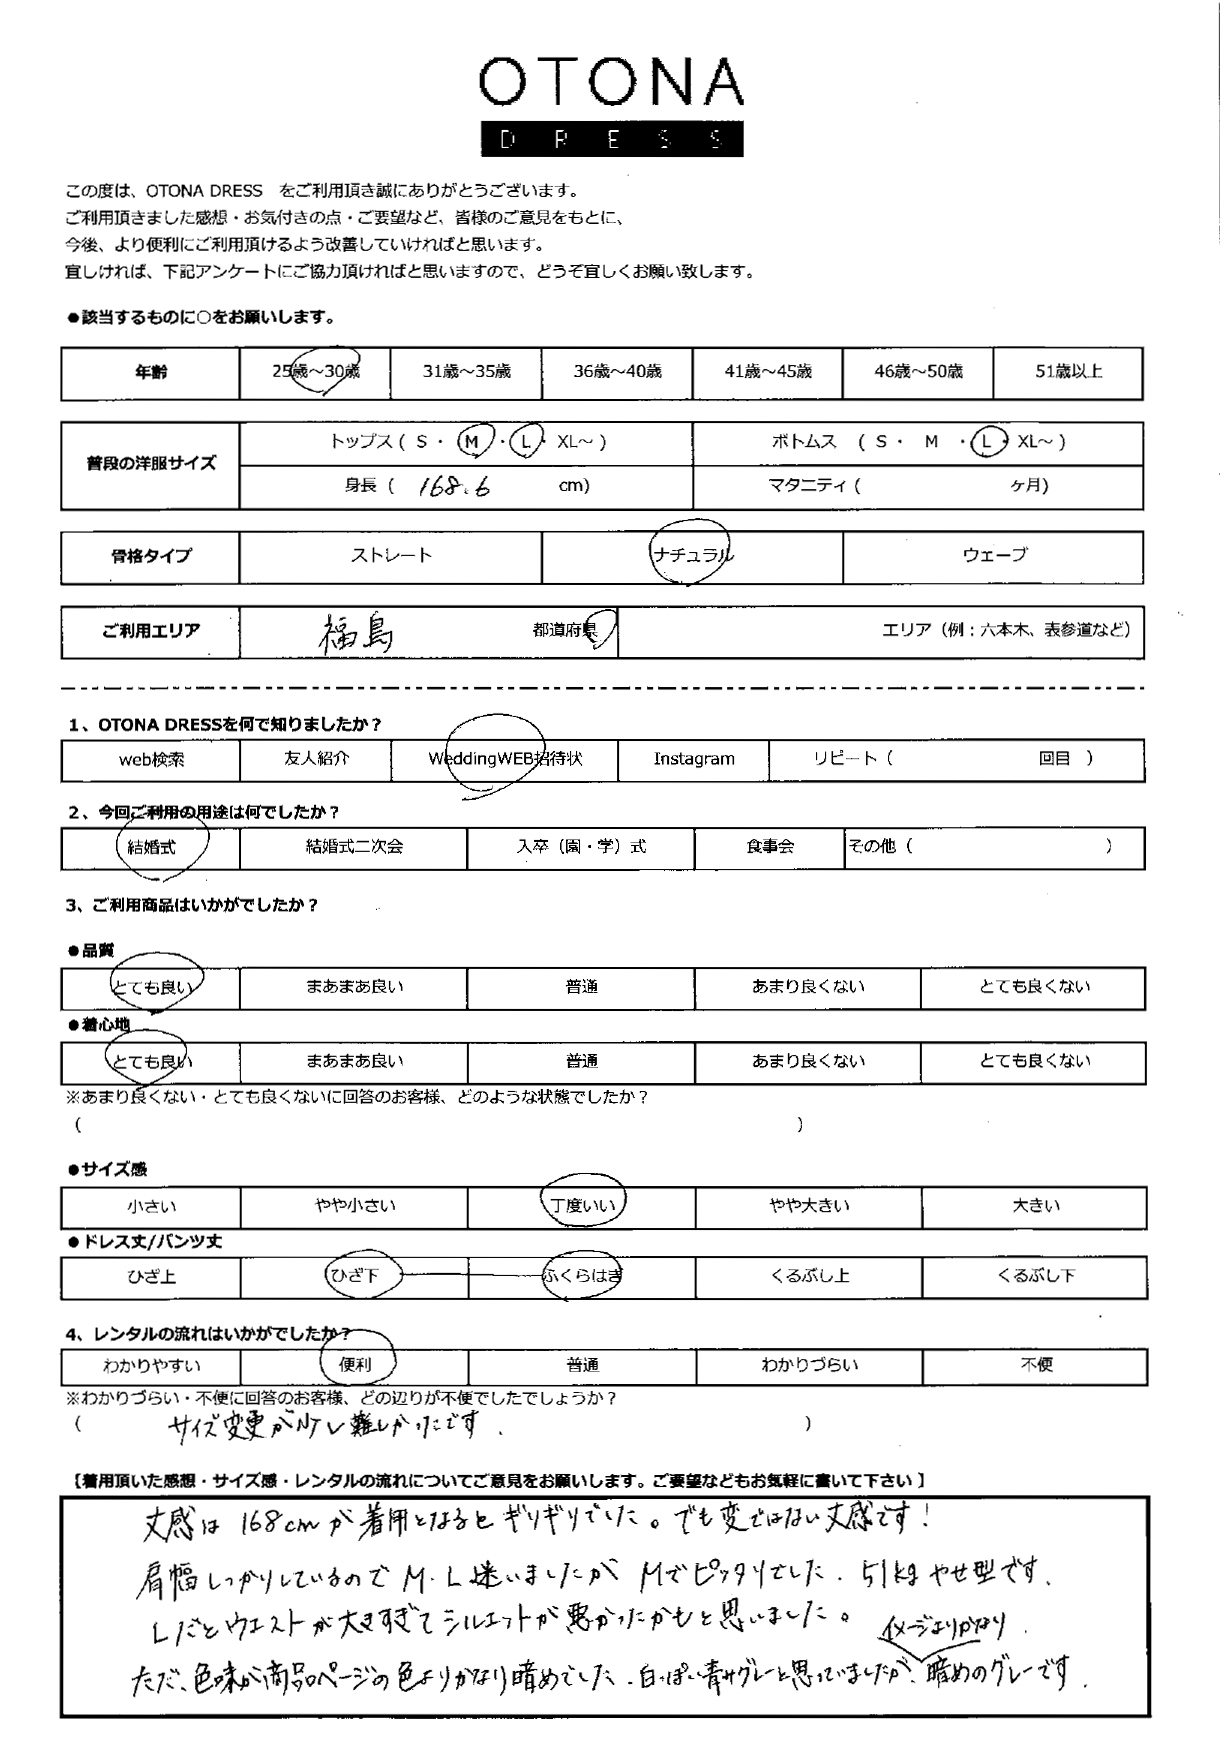 OTONA
DRESS
この度は、OTONA DRESS をご利用頂き誠にありがとうございます。
ご利用頂きました感想・お気付きの点・ご要望など、皆様のご意見をもとに、
今後、より便利にご利用頂けるよう改善していければと思います。
宜しければ、下記アンケートにご協力頂ければと思いますので、どうぞ宜しくお願い致します。
●該当するものに○をお願いします。
年齢 25歳～30歳 31歳～35歳 36歳～40歳 41歳～45歳 46歳～50歳 51歳以上
普段の洋服サイズ トップス ( S ・ M ・ L ・ XL～ ) ボトムス ( S ・ M ・ L ・ XL～ )
身長 ( 168.6 cm) マタニティ ( ヶ月)
骨格タイプ ストレート ナチュラル ウェーブ
ご利用エリア 福島 都道府県 エリア（例：六本木、表参道など）
1、OTONA DRESSを何で知りましたか？
web検索 友人紹介 WeddingWEB招待状 Instagram リピート ( 回目 )
2、今回ご利用の用途は何でしたか？
結婚式 結婚式二次会 入卒（園・学）式 食事会 その他 ( )
3、ご利用商品はいかがでしたか？
●品質
とても良い まあまあ良い 普通 あまり良くない とても良くない
●着心地
とても良い まあまあ良い 普通 あまり良くない とても良くない
※あまり良くない・とても良くないに回答のお客様、どのような状態でしたか？
( )
●サイズ感
小さい やや小さい 丁度いい やや大きい 大きい
●ドレス丈/パンツ丈
ひざ上 ひざ下 ふくらはぎ くるぶし上 くるぶし下
4、レンタルの流れはいかがでしたか？
わかりやすい 便利 普通 わかりづらい 不便
※わかりづらい・不便に回答のお客様、どの辺りが不便でしたでしょうか？
( サイズ変更が少し難しかったです. )
【着用頂いた感想・サイズ感・レンタルの流れについてご意見をお願いします。ご要望などもお気軽に書いて下さい】
丈感は 168cm が着用となるとギリギリでした。でも変ではない丈感です！
肩幅しっかりしているので M・L 迷いましたが Mでピッタリでした. 51kg やせ型です.
Lだとウエストが大きすぎてシルエットが悪かったかもと思いました。
イメージよりかなり
ただ、色味が商品ページの色よりかなり暗めでした. 白っぽい青みグレーと思っていましたが、暗めのグレーです.